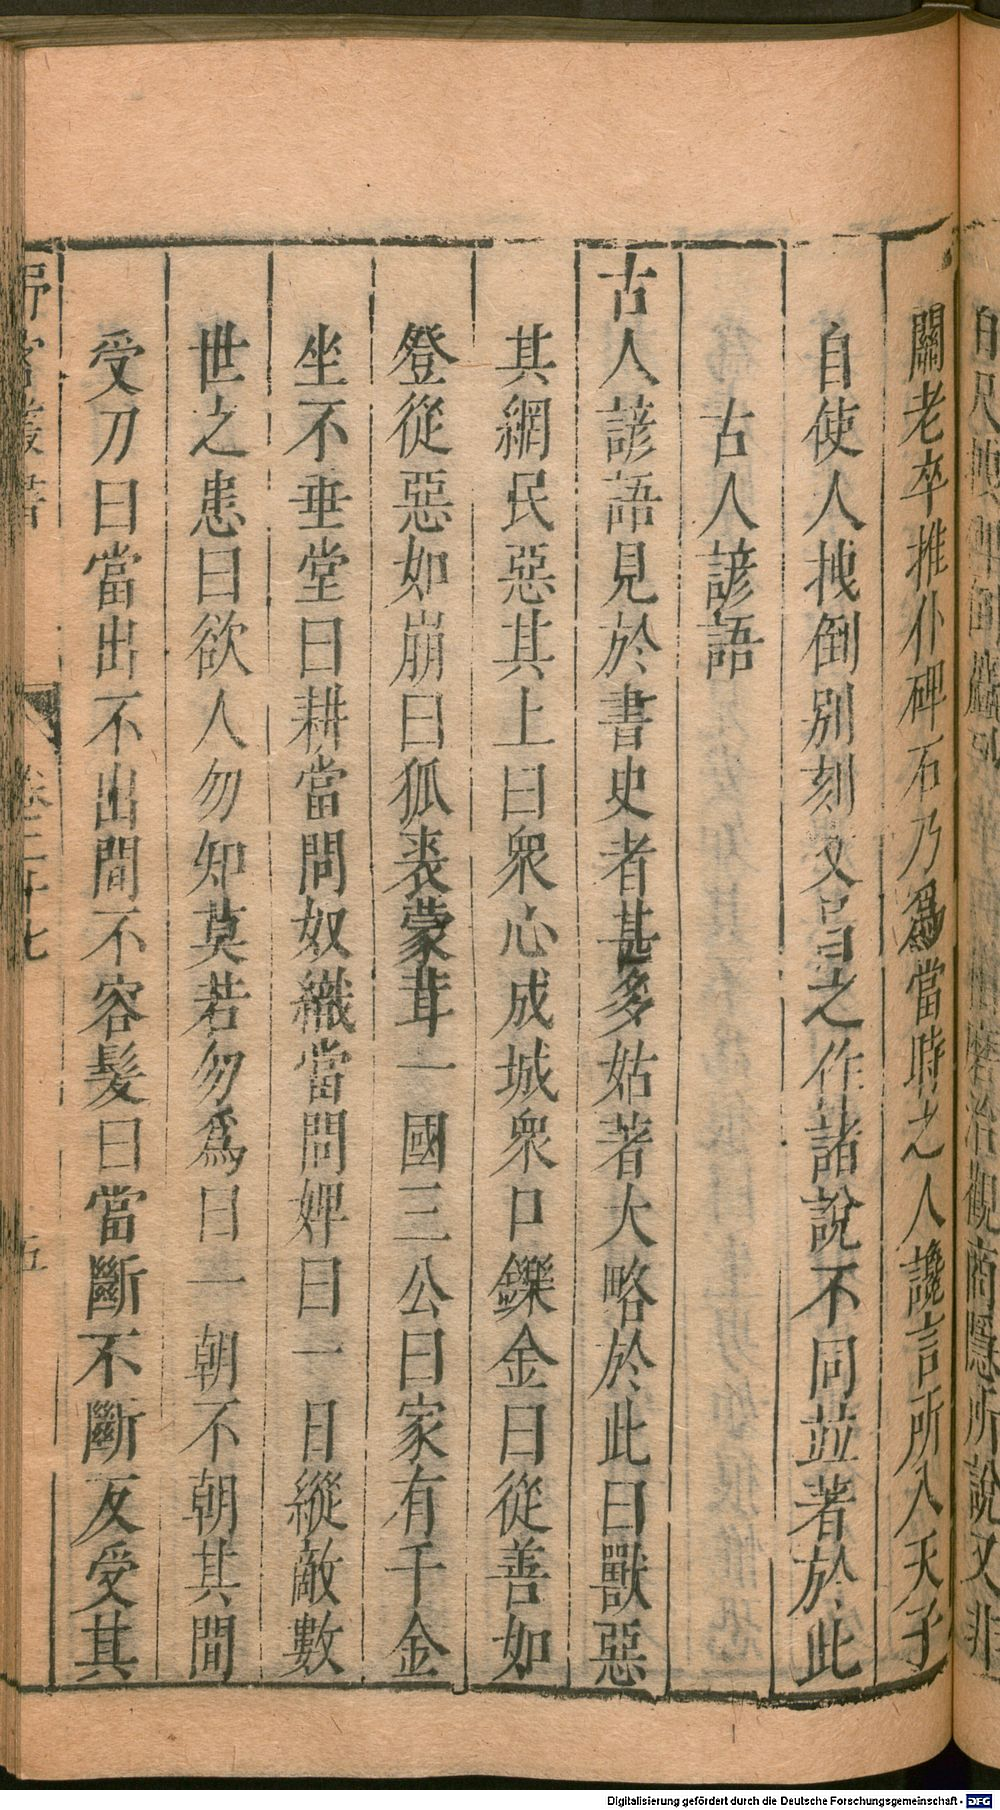 關老卒推仆碑石乃爲當時之人讒言所入天子
自使人拽倒別刻文昌之作諸說不同並著於此
古人諺語
古人諺語見於書史者甚多姑著大略於此曰獸惡
其網民惡其上曰衆心成城衆口鑠金曰從善如
登從惡如崩曰狐裘蒙茸一國三公曰家有千金
坐不垂堂曰耕當問奴織當問婢曰一日縱敵數
世之患曰欲人勿知莫若勿爲曰一朝不朝其間
受刀曰當出不出間不容髮曰當斷不斷反受其
野客叢書
卷二十七
五
Digitalisierung gefördert durch die Deutsche Forschungsgemeinschaft - DFG